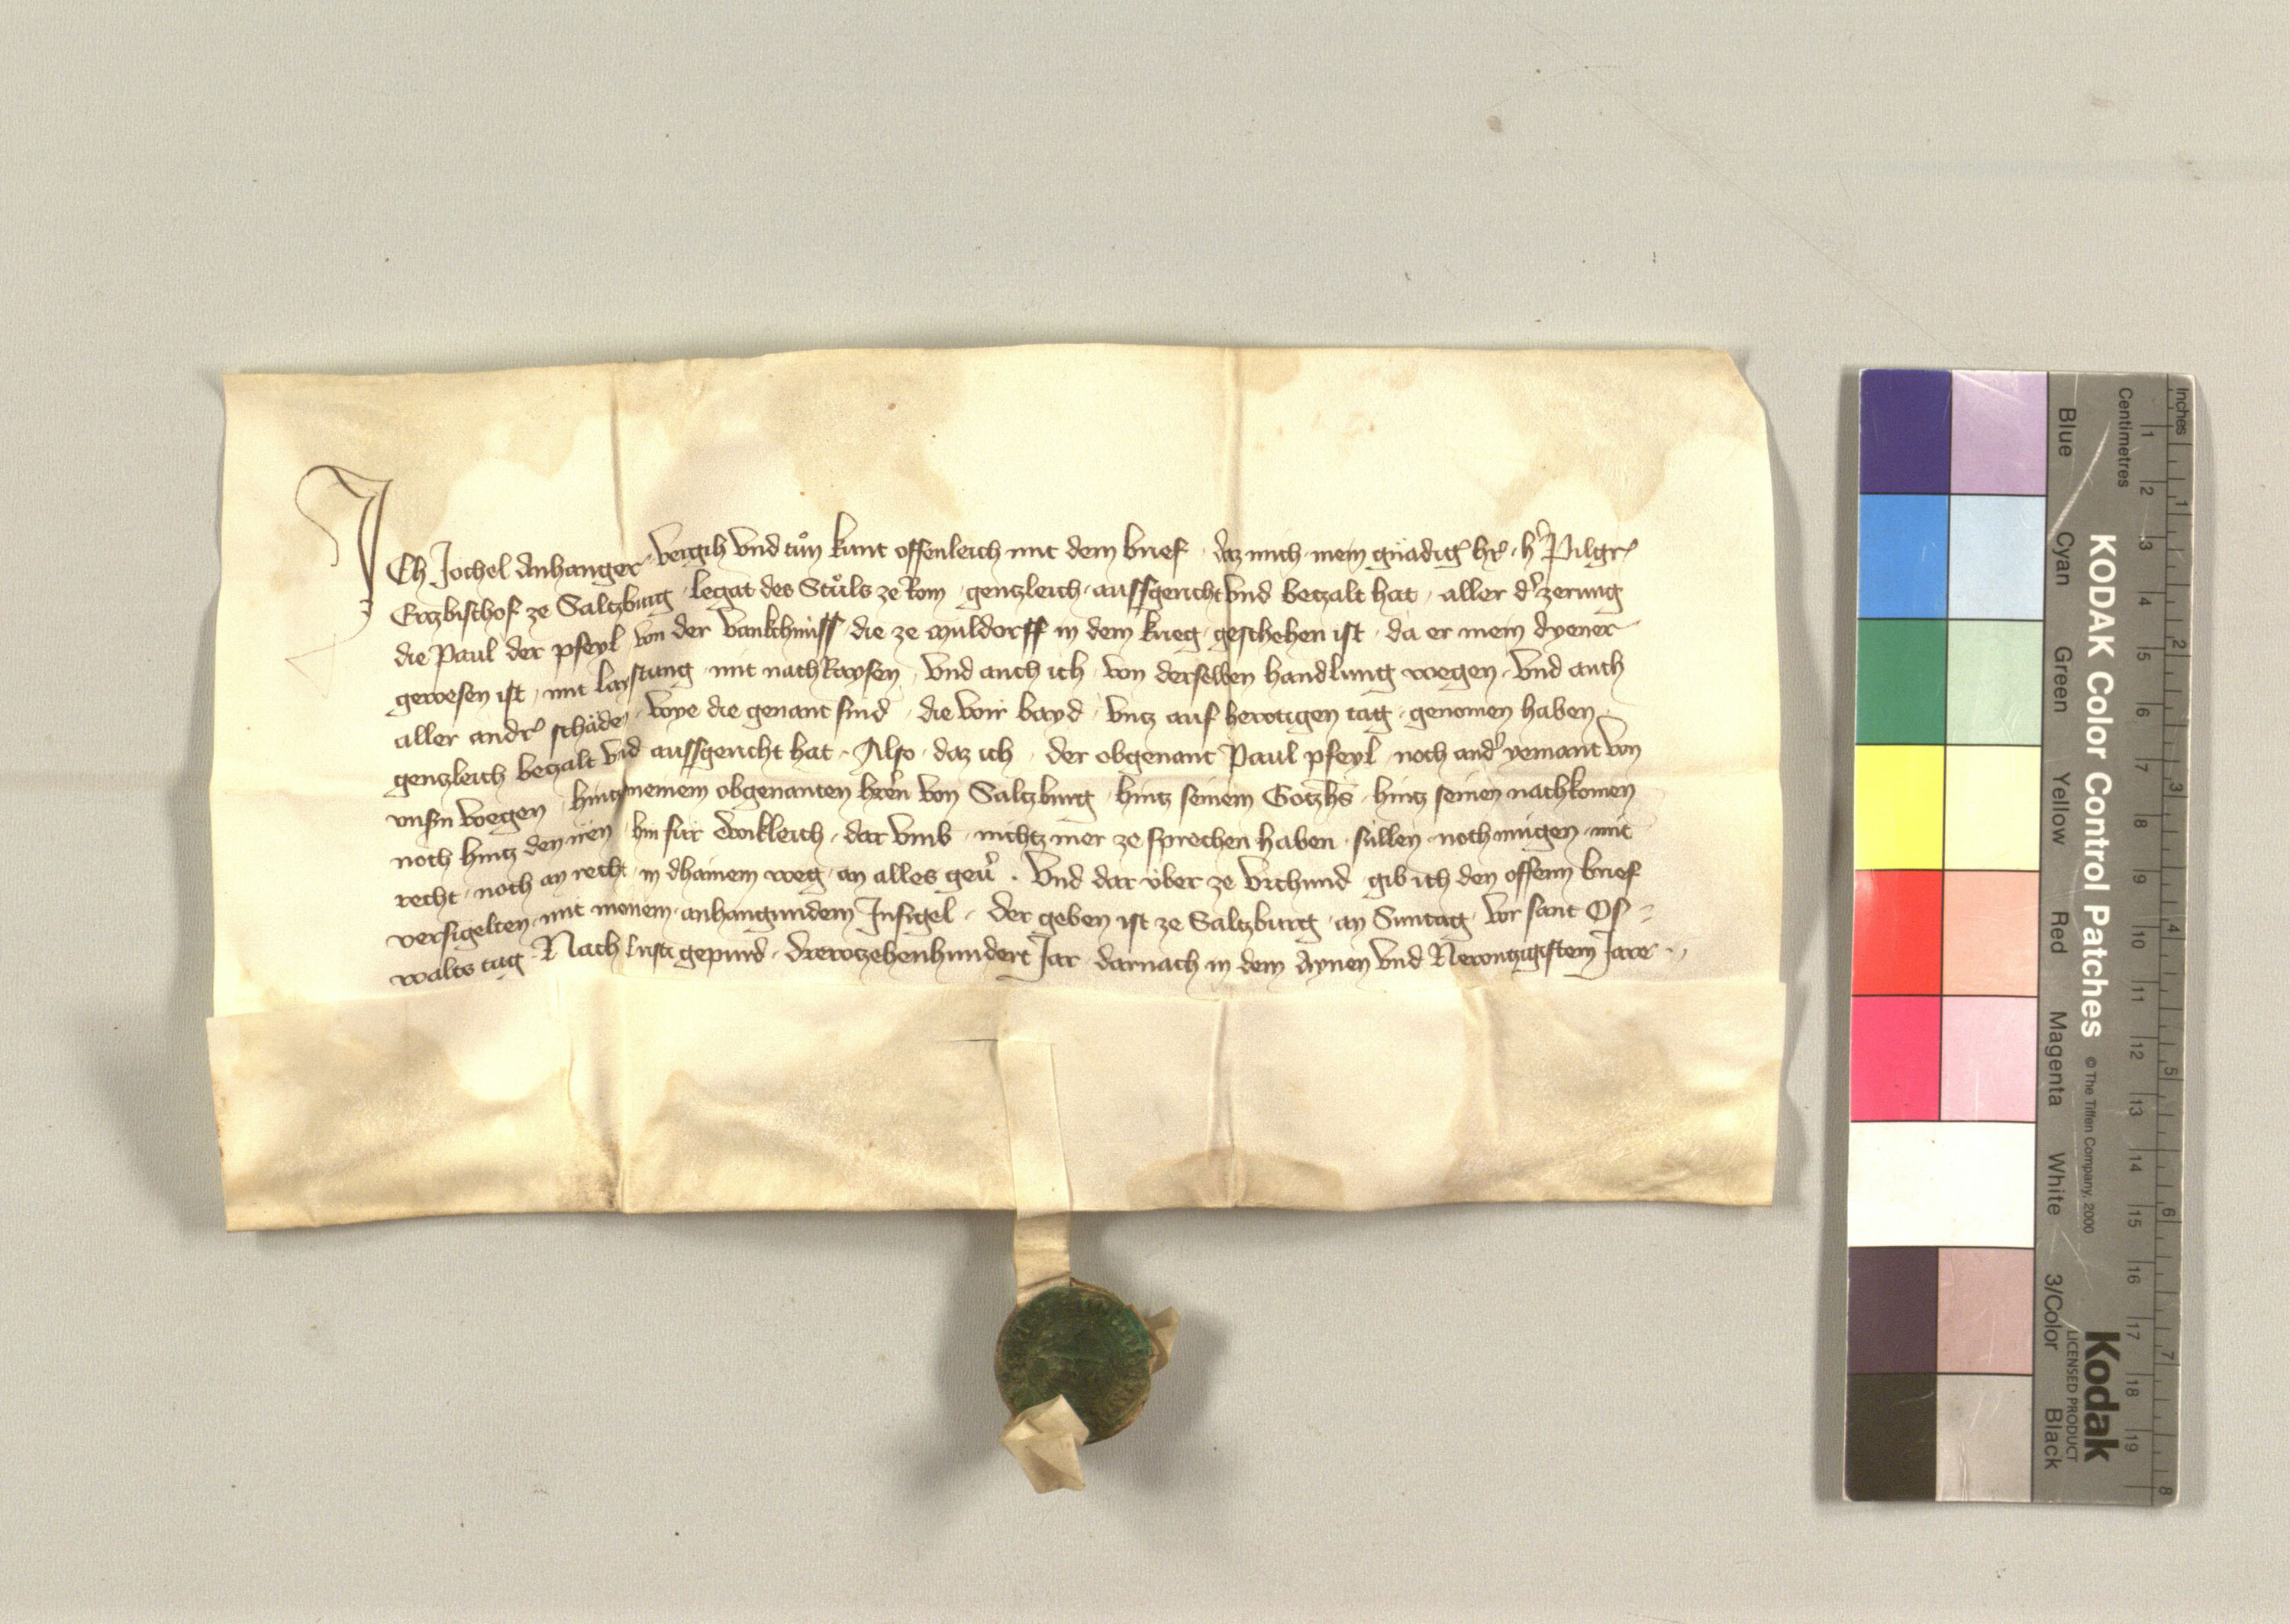 ICh Jochel Anhanger vergih vnd tůn kunt offenleich mit dem brief daz mich mein gnädig hr h Pilgr
Erczbischof ze Saltzburg legat des Stůls ze Rom genczleich aussgericht vnd beczalt hat aller d zerung
die Paul der pfeyl von der vankchnuss die ze Muldorff in dem krieg geschehen ist da er mein dyener
gewesen ist mit laystung mit nachRaysen vnd auch ich von derselben handlung wegen vnd auch
aller andr schäden wye die genant sind die wir bayd vncz auf hewtigen tag genomen haben
genczleich beczalt vnd aussgericht hat Also daz ich der obgenant Paul pfeyl noch and yemant von
vnsn wegen hincz meinem obgenanten hren von Saltzburg hincz seinem Gotzhs hincz seinen nachkomen
noch hincz den iren hin für ewikleich dar vmb nichtz mer ze sprechen haben süllen noch mügen mit
recht noch an recht in dhainem weg an alles geu. Vnd dar über ze vrchund gib ich den offenn brief
versigelten mit meinem anhangundem Insigel der geben ist ze Saltzburg an Suntag vor sant Os=
walts tag Nach krists gepurd drewczehenhundert Jar darnach in dem Aynen vnd Newnczigistem Jare
KODAK Color Control Patches
© The Tiffen Company, 2000
Kodak
LICENSED PRODUCT
Blue Cyan Green Yellow Red Magenta White 3/Color Black
Inches 1 2 3 4 5 6 7 8
Centimetres 1 2 3 4 5 6 7 8 9 10 11 12 13 14 15 16 17 18 19